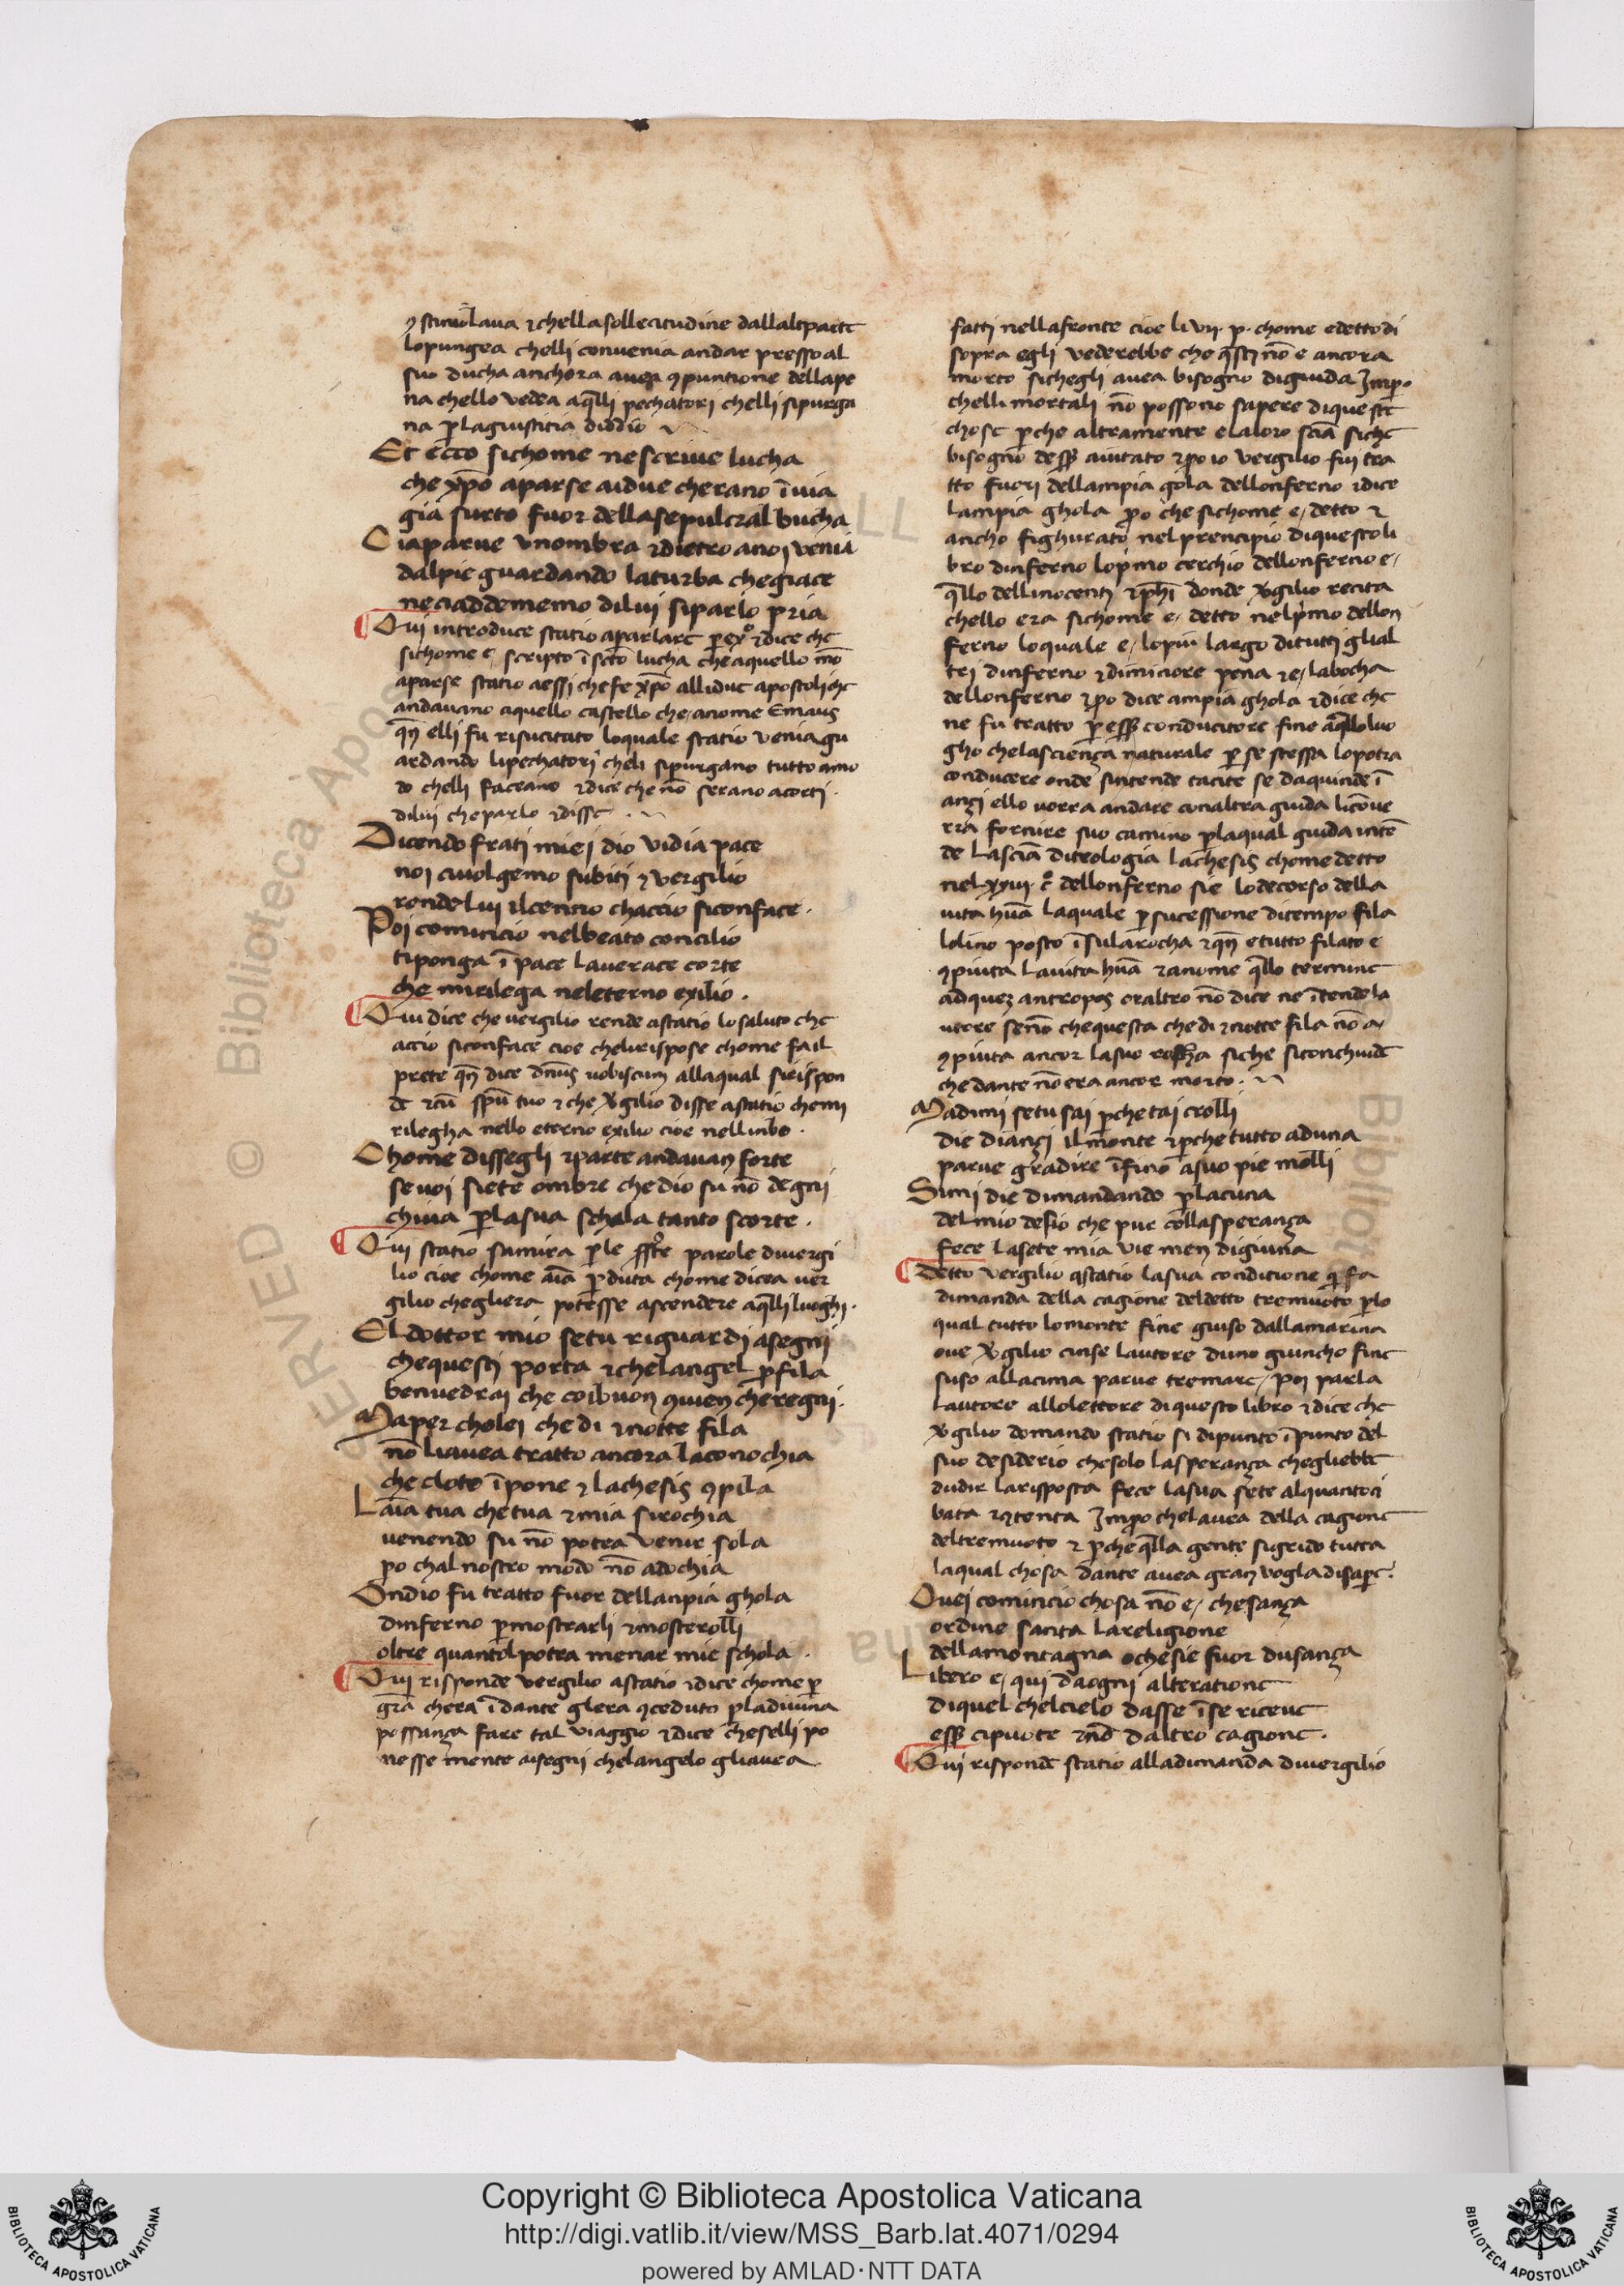 ꝯstimolaua ⁊chella sollecitudine dallaltparte
lopungea chelli conuenia andar pressoal
suo ducha anchora auea ꝯpuntione dellape
na chello vedea aqlli pechatori chelli sipurga
na ꝑlagiustitia didio
Et ecco sichome nescriue lucha
che xp̄o aparse aidue cherano ī uia
gia surto fuor dellasepulcral bucha
Ciaparue vnombra ⁊dietro anoi venia
dalpie guardando laturba chegiace
neciaddememo dilui siparlo pria
Qui introduce statio aparlare ꝑ exº ⁊dice che
sichome e scripto ī sc̄to lucha che aquello mō
aparse statio aessi chefe xp̄o alliduc apostoli che
andauano aquello castello che anome Emaus
qn̄ elli fu risucitato loquale statio veniagu
ardando lipechatori cheli sipurgano tutto amo
do chelli faceano ⁊dice che nō serano acorti
dilui cheparlo ⁊disse
Dicendo frati miei dio vidia pace
noi ciuolgemo subiti ⁊ vergilio
rendelui ilcencio chaccio siconface
Poi comincio nelbeato concilio
tiponga ī pace lauerace corte
che mirilega neleterno exilio
Qui dice che vergilio rende astatio losaluto che
accio siconface cioe cheluirispose chome fail
prete qn̄ dice dn̄us uobiscum allaqual sirispon
de ⁊cū spū tuo ⁊ che v̄gilio disse astatio chemi
rilegha nello eterno exilio cioe nellinbo
Chome dissegli ⁊parte andauan forte
seuoi siete ombre chedio su nō degni
chiua ꝑlasua schala tanto scorte
Qui statio samira ꝑ le parole diuergi
lio cioe chome aīa ꝑduta chome dicea uer
gilio chegliera potesse ascendere aqlli luoghi
El dottor mio setu riguardi asegni
chequesti porta ⁊chelangel ꝓfila
benuedrai che coibuon ꝯuien cheregni
Maper cholei che di ⁊notte fila
nō liauea tratto ancora laconochia
che cloto ī pone ⁊ lachesis ꝯpila
Laīa tua chetua ⁊mia sirochia
venendo su nō potea venir sola
ꝑo chal nostro modo nō adochia
Ondio fu tratto fuor dellanpia ghola
dinferno ꝑmostrarli ⁊mosterolli
oltre quantol potra menar mie schola
Qui risponde vergilio astatio ⁊dice chome ꝑ
grā chera ī dante glera ꝯceduto ꝑladiuina
possança fare tal viaggio ⁊dice cheselli po
nesse mente aisegni chelangelo gliauea
fatti nellafronte cioe li vii p chome edettodi
sopra egli vederebbe che qsti nō e ancora
morto sichegli auea bisogno diguida Impo
chelli mortali nō possono sapere dqueste
chose ꝑche altramente elaloro sciā siche
bisogno desser̄ aiutato ⁊ꝑo io vergilio fui tra
tto fuori dellampia gola dellonferno ⁊dice
lampia ghola ꝑo che sichome e detto ⁊
ancho fighurato nelprencipio diquestoli
bro dinferno lopmo cerchio dellonferno e
qllo dellinocenti ⁊ph̄i donde v̄gilio recita
chello era sichome e detto nelpmo dellon
ferno loquale e lopiu largo ditutti glial
tri dinferno ⁊diminore pena ⁊e labocha
dellonferno ⁊ꝑo dice ampia ghola ⁊dice che
ne fu tratto ꝑ esser̄ conducitore fine aqlloluo
gho chelasciença naturale ꝑ se stessa lopotra
conducere onde sintende tacite se daquinde ī
ançi ello uorra andare conaltra guida licōue
rra fornire suo camino ꝑlaqual guida intē
de lasciā diteologia lachesis chomedetto
nel xxiii cº dellonferno sie lodecorso della
uita huā laquale ꝑ sucessione ditempo fila
lolino posto ī sularocha ⁊qn̄ etutto filato e
ꝯpiuta lauita huā ⁊anome qllo termine
adquez antropos oraltro nō dice ne ītendela
utore senō chequesta che di ⁊notte fila nō a
ꝯpiuta ancor lasuo rocha siche siconchiude
che dante nō era ancor morto
Madimi setusai ꝑche tai crolli
die diançi ilmonte ⁊ꝑche tutto aduna
parue gradire ī fino asuo pie molli
Simi die dimandando ꝑlacuna
delmio desio che pur collasperança
fece lasete mia vie men digiuna
Detto vergilio astatio lasua conditione q̄ fa
dimanda della cagione deldetto tremuoto ꝑlo
qual tutto lomonte fine giuso dallamarina
oue v̄gilio cinse lautore duno giuncho fine
suso allacima parue tremare poi parla
lautore allolettore diquesto libro ⁊dice che
v̄gilio domando statio si dipunto ī punto del
suo desiderio chesolo lasperança chegliebbe
dudir larisposta fece lasua sete alquantoci
bata ⁊ꝯtenta Impo chelauea della cagione
deltremuoto ⁊ ꝑche qlla gente sigrido tutta
laqual chosa dante auea gran voglia disaper̄
Quei comincio chosa nō e chesança
ordine santa lareligione
dellamontagna ochesie fuor dusança
Libero e qui daogni alteratione
diquel chelcielo dasse ī se riceue
esser̄ cipuote ⁊nō daltro cagione
Qui risponde statio alladimanda diuergilio
Copyright © Biblioteca Apostolica Vaticana
http://digi.vatlib.it/view/MSS_Barb.lat.4071/0294
powered by AMLAD·NTT DATA
BIBLIOTECA APOSTOLICA VATICANA
BIBLIOTECA APOSTOLICA VATICANA